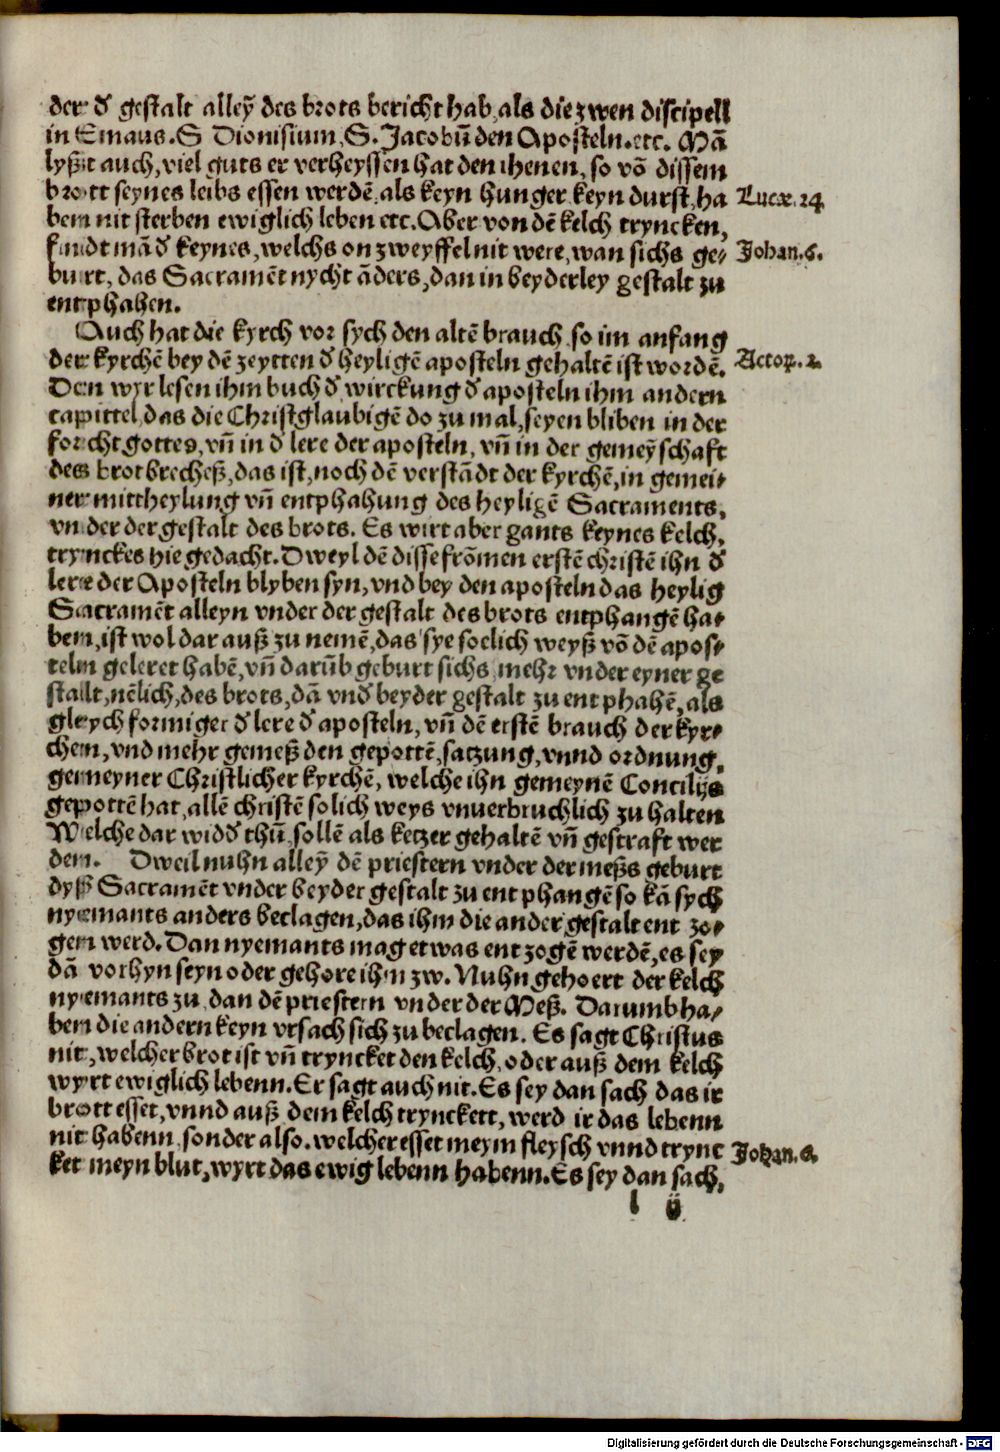 der d̕ gestalt alley̅ des brots bericht hab, als die zwen discipell
in Emaus. S Dionisium, S. Jacobu̅ den Aposteln. etc. Ma̅
lyßzt auch, viel guts er verheyssen hat den ihenen, so vo̅ dissem
brott seynes leibs essen werde̅, als keyn hunger, keyn durst, ha
ben nit sterben ewiglich leben etc. Aber von de̅ kelch tryncken,
Lucæ. 24
findt ma̅ d̕ keynes, welchs on zweyffel nit were, wan sichs ge⸗
Johan. 6.
burt, das Sacrame̅t nycht a̅ders, dan in beyderley gestalt zu
entphahen.
Auch hat die kyrch vor sych den alte̅ brauch, so im anfang
der kyrche̅ bey de̅ zeytten d̕ heylige̅ aposteln gehalte̅ ist worde̅.
Actoꝝ. 2.
Den wyr lesen ihm buch d̕ wirckung d̕ aposteln ihm andern
capittel, das die Christglaubige̅ do zu mal, seyen bliben in der
forcht gottes, vn̅ in d̕ lere der aposteln, vn̅ in der gemey̅schaft
des brotbrecheß, das ist, noch de̅ versta̅dt der kyrche̅, in gemei⸗
ner mittheylung vn̅ entphahung des heylige̅ Sacraments,
vnder der gestalt des brots. Es wirt aber gants keynes kelch,
trynckes hie gedacht. Dweyl de̅ disse fro̅men erste̅ christe̅ ihn d̕
lere der Aposteln blyben syn, vnd bey den aposteln das heylig
Sacrame̅t alleyn vnder der gestalt des brots entphange̅ ha⸗
ben, ist wol dar auß zu neme̅, das sye soelich weyß vo̅ de̅ apos⸗
teln geleret habe̅, vn̅ daru̅b geburt sichs, mehr vnder eyner ge
stallt, ne̅lich, des brots, da̅ vnd̕ beyder gestalt zu entphahe̅, als
gleychformiger d̕ lere d̕ aposteln, vn̅ de̅ erste̅ brauch der kyr⸗
chen, vnd mehr gemeß den gepotte̅, satzung, vnnd ordnung,
gemeyner Christlicher kyrche̅, welche ihn gemeyne̅ Concilijs
gepotte̅ hat, alle̅ christe̅ solich weys vnuerbruchlich zu halten
Welche dar widd̕ thu̅, solle̅ als ketzer gehalte̅ vn̅ gestraft wer
den. Dweil nuhn alley̅ de̅ priestern vnder der meßs geburt
dyß Sacrame̅t vnder beyder gestalt zu entphange̅ so ka̅ sych
nyemants anders beclagen, das ihm die ander gestalt ent zo⸗
gen werd. Dan nyemants mag etwas ent zoge̅ werde̅, es sey
da̅ vorhyn seyn oder gehore ihm zw. Nuhn gehoert der kelch
nyemants zu, dan de̅ priestern vnder der Meß. Darumb ha⸗
ben die andern keyn vrsach sich zu beclagen. Es sagt Christus
nit, welcher brot ist vn̅ tryncket den kelch, oder auß dem kelch
wyrt ewiglich lebenn. Er sagt auch nit. Es sey dan sach das ir
brott esset, vnnd auß dem kelch trynckett, werd ir das lebenn
nit habenn, sonder also. welcher esset meym fleysch vnnd trync
Johan. 6.
ket meyn blut, wyrt das ewig lebenn habenn. Es sey dan sach,
l ij
Digitalisierung gefördert durch die Deutsche Forschungsgemeinschaft - DFG